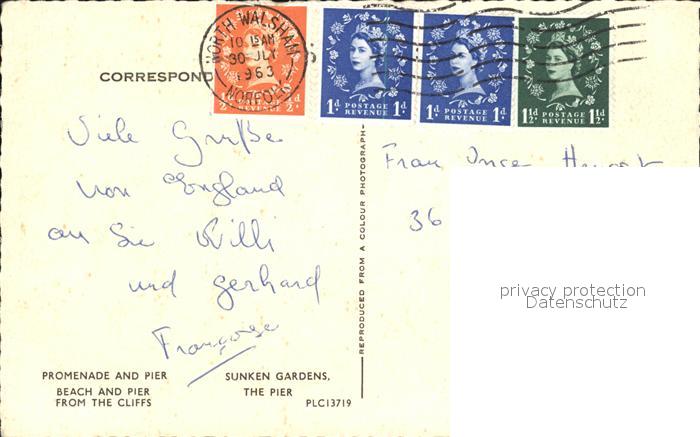 NORTH WALSHAM
10 15 AM
30 JLY
1963
NORFOLK
CORRESPOND
½d ½d
1d POSTAGE REVENUE 1d
1d POSTAGE REVENUE 1d
1½d POSTAGE REVENUE 1½d
Viele Grüße
von England
an Sie Willi
und Gerhard
Françoise
Frau
36
REPRODUCED FROM A COLOUR PHOTOGRAPH
privacy protection
Datenschutz
PROMENADE AND PIER
BEACH AND PIER
FROM THE CLIFFS
SUNKEN GARDENS,
THE PIER
PLC13719